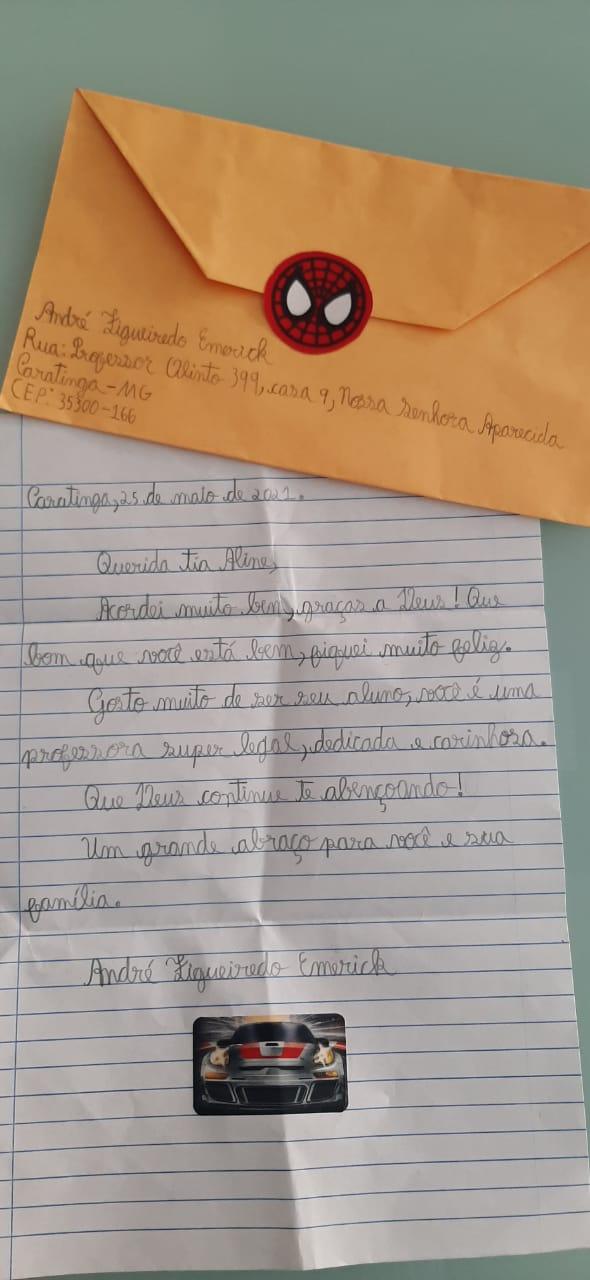 André Figueiredo Emerick
Rua: Professor Olinto 399, casa 9, Nossa Senhora Aparecida
Caratinga-MG
CEP: 35300-166
Caratinga, 25 de maio de 2021.
Querida tia Aline,
Acordei muito bem, graças a Deus! Que
bom que você está bem, fiquei muito feliz.
Gosto muito de ser seu aluno, você é uma
professora super legal, dedicada e carinhosa.
Que Deus continue te abençoando!
Um grande abraço para você e sua
família.
André Figueiredo Emerick